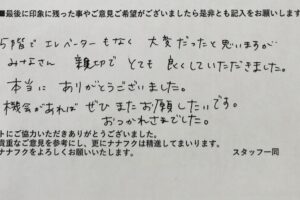 ■最後に印象に残った事やご意見ご希望がございましたら是非とも記入をお願いします
5階で エレベーターもなく 大変だったと思いますが
みなさん 親切で とても 良くしていただきました。
本当に ありがとうございました。
機会があれば ぜひ またお願したいです。
おつかれさまでした。
トにご協力いただきありがとうございました。
貴重なご意見を参考にし、更にナナフクは精進してまいります。
ナナフクをよろしくお願いいたします。 スタッフ一同